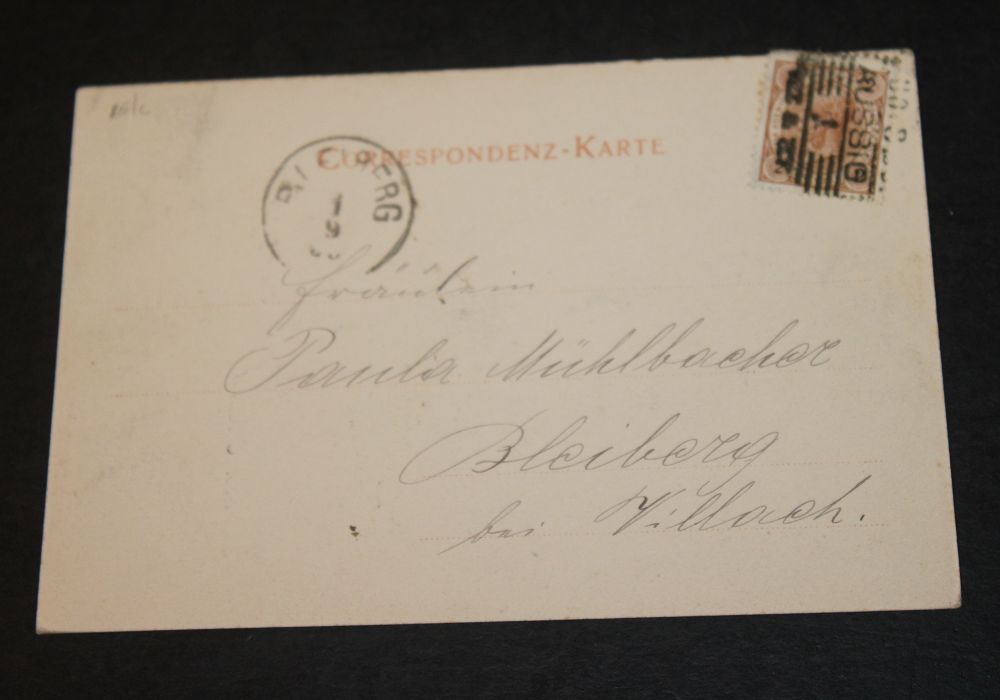 CORRESPONDENZ-KARTE
AUSSIG
1
BERG
1
9
Fräulein
Paula Mühlbacher
Bleiberg
bei Villach.